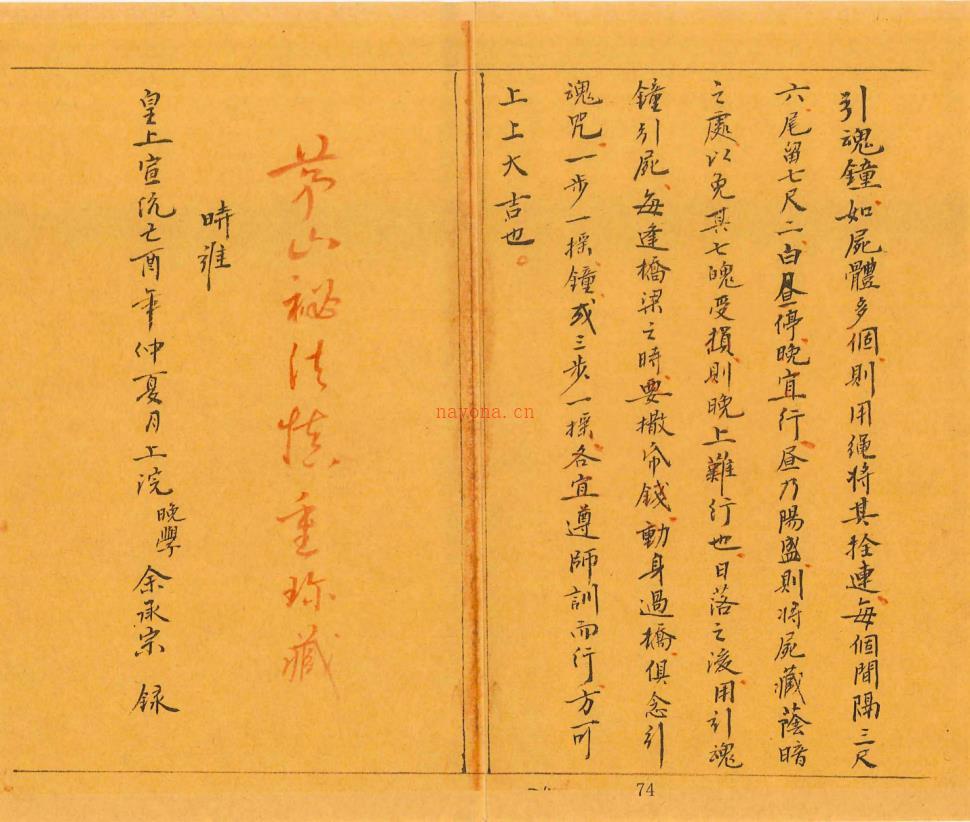 引魂鐘如屍體多個則用繩將其拴連每個間隔三尺
六尾留七尺二白晝停晚宜行晝乃陽盛則將屍藏蔭暗
之處以免其七魄受損則晚上難行也日落之後用引魂
鐘引屍每逢橋梁之時要撒帋錢動身過橋俱念引
魂咒一步一搖鐘或三步一搖各宜遵師訓而行方可
上上大吉也。
茅山秘法慎重珍藏
時維
皇上宣統己酉年仲夏月上浣晚學余承宗 録
nayona.cn
74